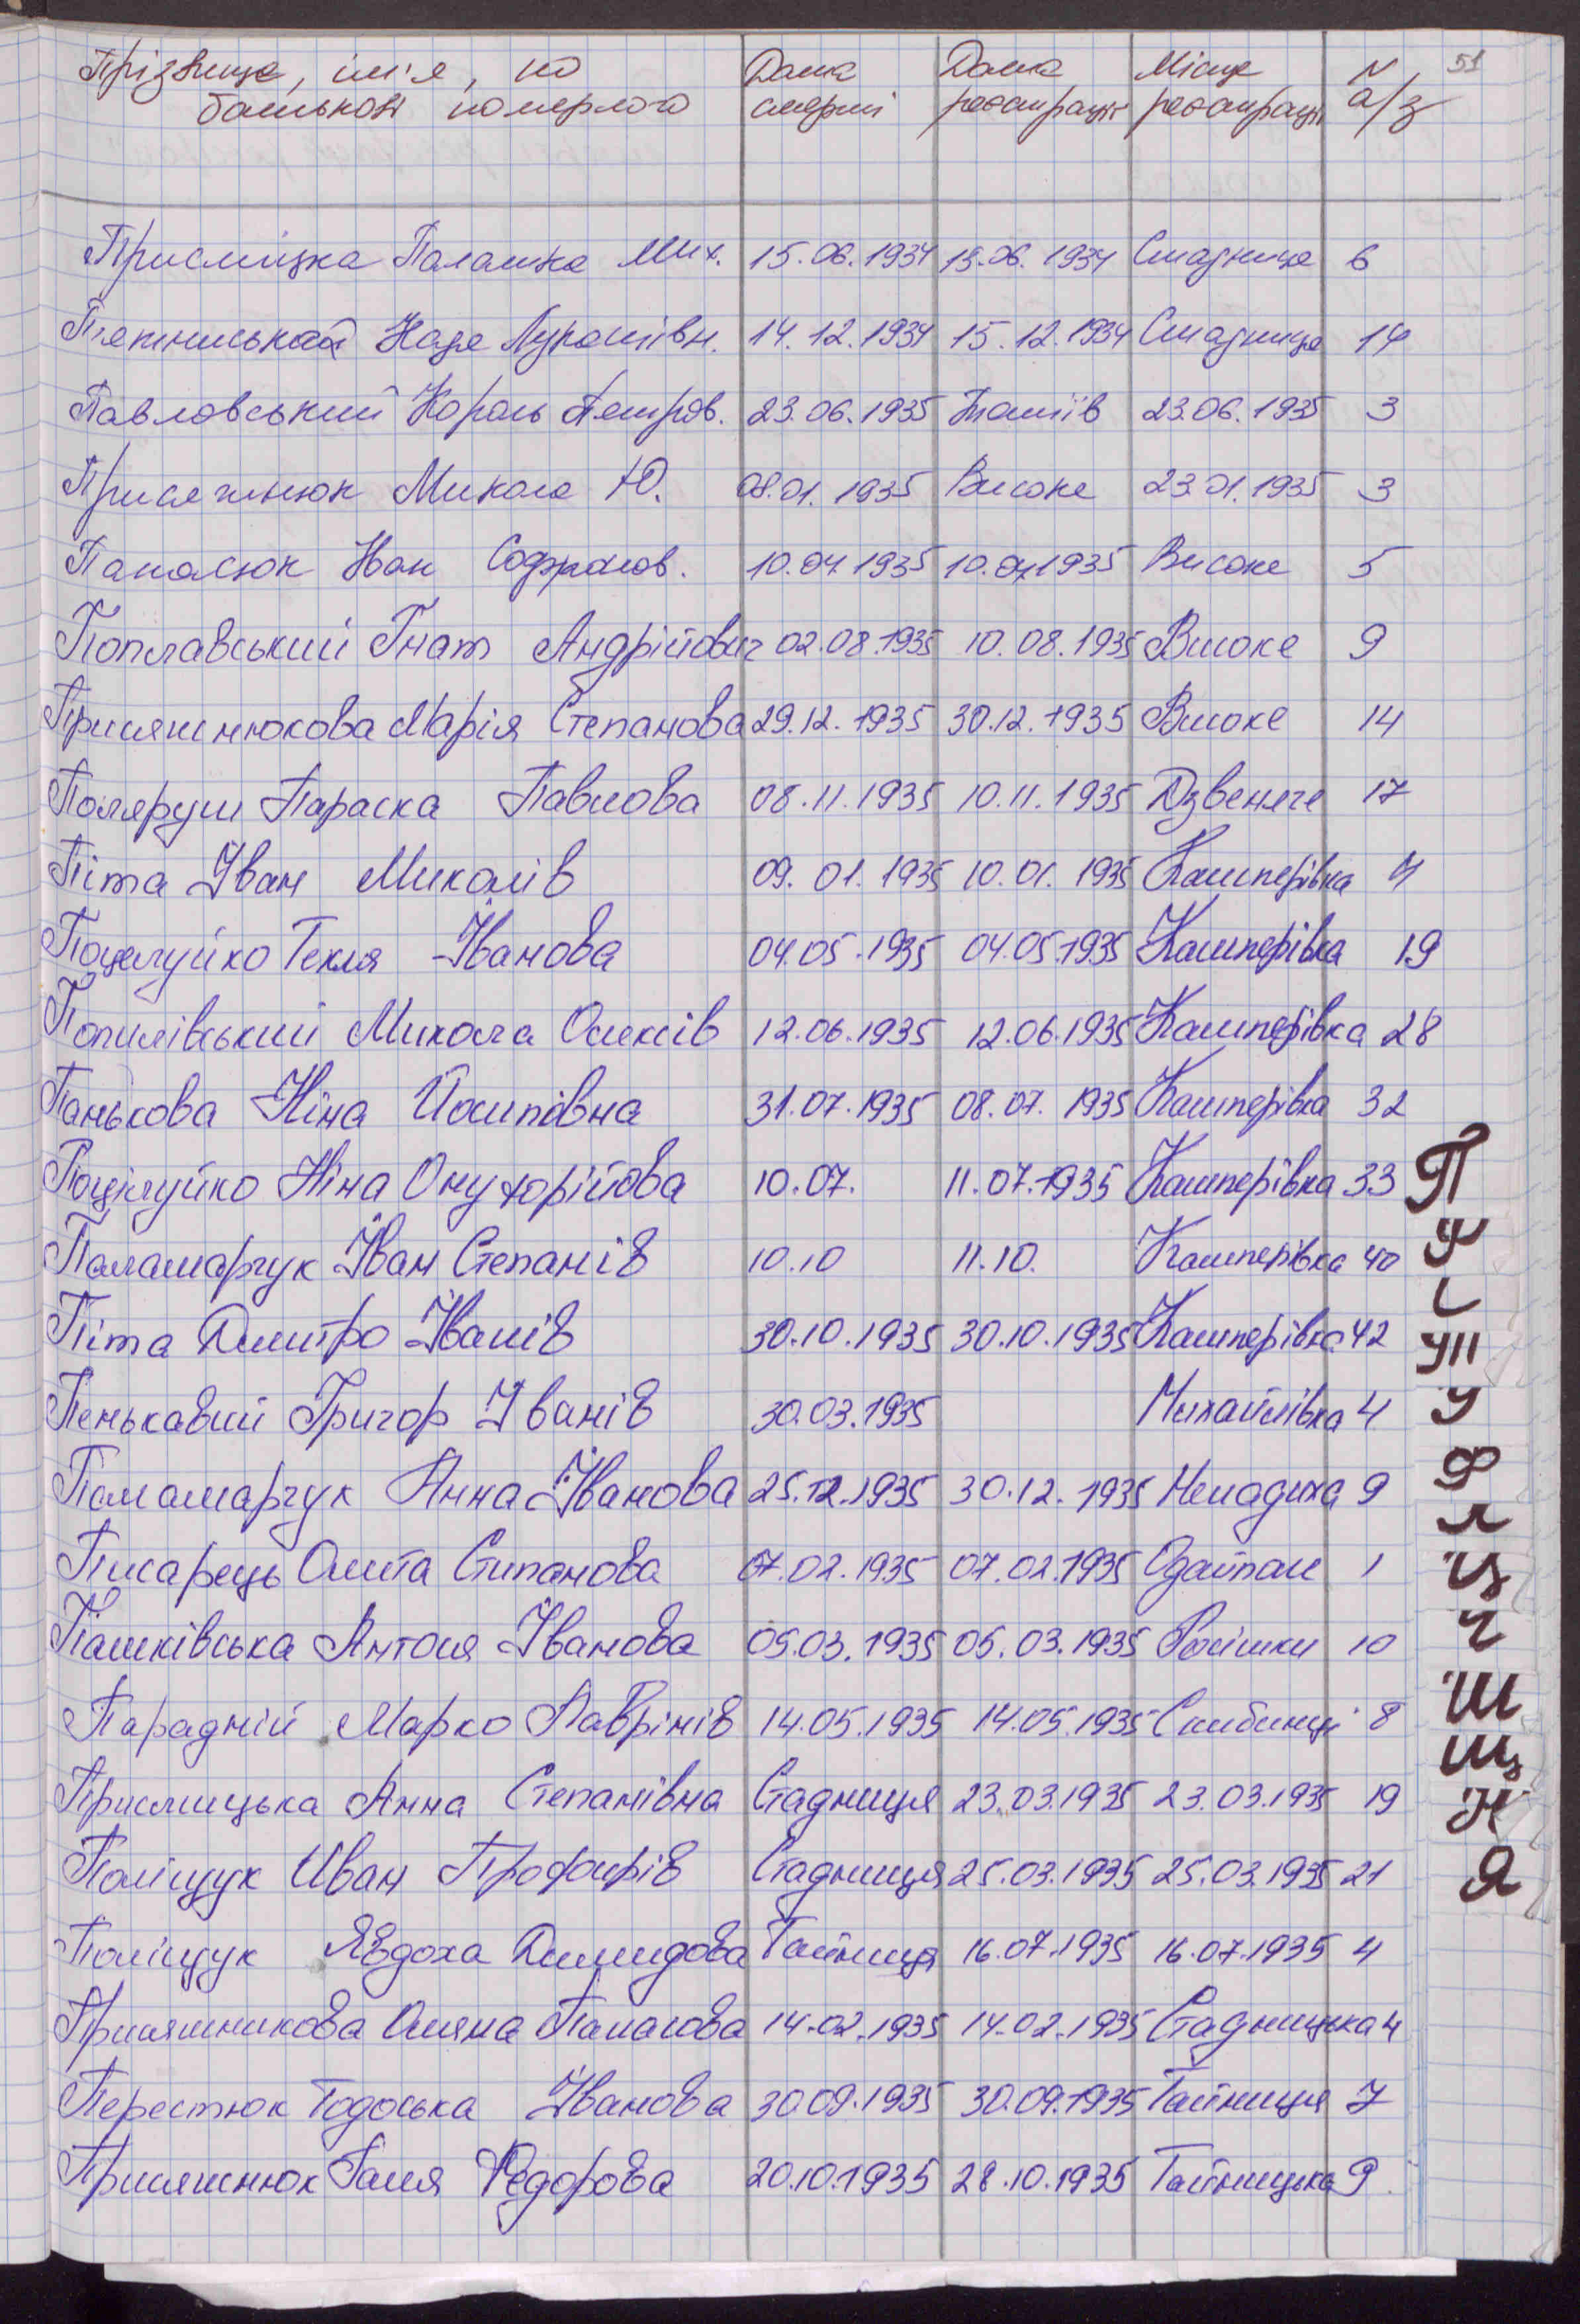 Прізвище, ім'я, по Дата Дата Місце N 51
батькові померлого смерті реєстрації реєстрації а/з
Прислицка Палашка Мих. 15.06.1934 15.06.1934 Стадниця 6
Надя 14.12.1934 15.12.1934 Стадниця 14
Павловський Король Петров. 23.06.1935 23.06.1935 3
Присяжнюк Микола Ю. 08.01.1935 Високе 23.01.1935 3
Панасюк Іван Софронов. 10.04.1935 10.04.1935 Високе 5
Поплавський Гнат Андрійович 02.08.1935 10.08.1935 Високе 9
Присяжнюкова Марія Степанова 29.12.1935 30.12.1935 Високе 14
Поляруш Параска Павлова 08.11.1935 10.11.1935 Дзвеняче 17
Піта Іван Миколів 09.01.1935 10.01.1935 Кашперівка 4
Поцелуйко Текля Іванова 04.05.1935 04.05.1935 Кашперівка 19
Попилівський Микола Олексів 12.06.1935 12.06.1935 Кашперівка 28
Панькова Ніна Йосипівна 31.07.1935 08.07. 1935 Кашперівка 32
Поцілуйко Ніна Онуфрійова 10.07. 11.07.1935 Кашперівка 33
Паламарчук Іван Степанів 10.10 11.10. Кашперівка 40
Піта Дмитро Іванів 30.10.1935 30.10.1935 Кашперівка 42
Пенькавий Григор Іванів 30.03.1935 Михайлівка 4
Паламарчук Анна Іванова 25.12.1935 30.12.1935 Ненадиха 9
Писарець Олита Степанова 07.02.1935 07.02.1935 Одайпіль 1
Пашківська Антося Іванова 05.03.1935 05.03.1935 Росішки 10
Парадній Марко Лаврінів 14.05.1935 14.05.1935 Скибинці 8
Прислицька Анна Степанівна Стадниця 23.03.1935 23.03.1935 19
Поліщук Иван Профирів Стадниця 25.03.1935 25.03.1935 21
Поліщук Явдоха Димидова Тайниця 16.07.1935 16.07.1935 4
Присяжникова Оляна Панасова 14.02.1935 14.02.1935 Стадницька 4
Перестюк Тодоська Іванова 30.09.1935 30.09.1935 Тайниця 7
Присяжнюк Галя Федорова 20.10.1935 28.10.1935 Тайницька 9
П
У
Ф
Ц
Ч
Ш
Щ
Я